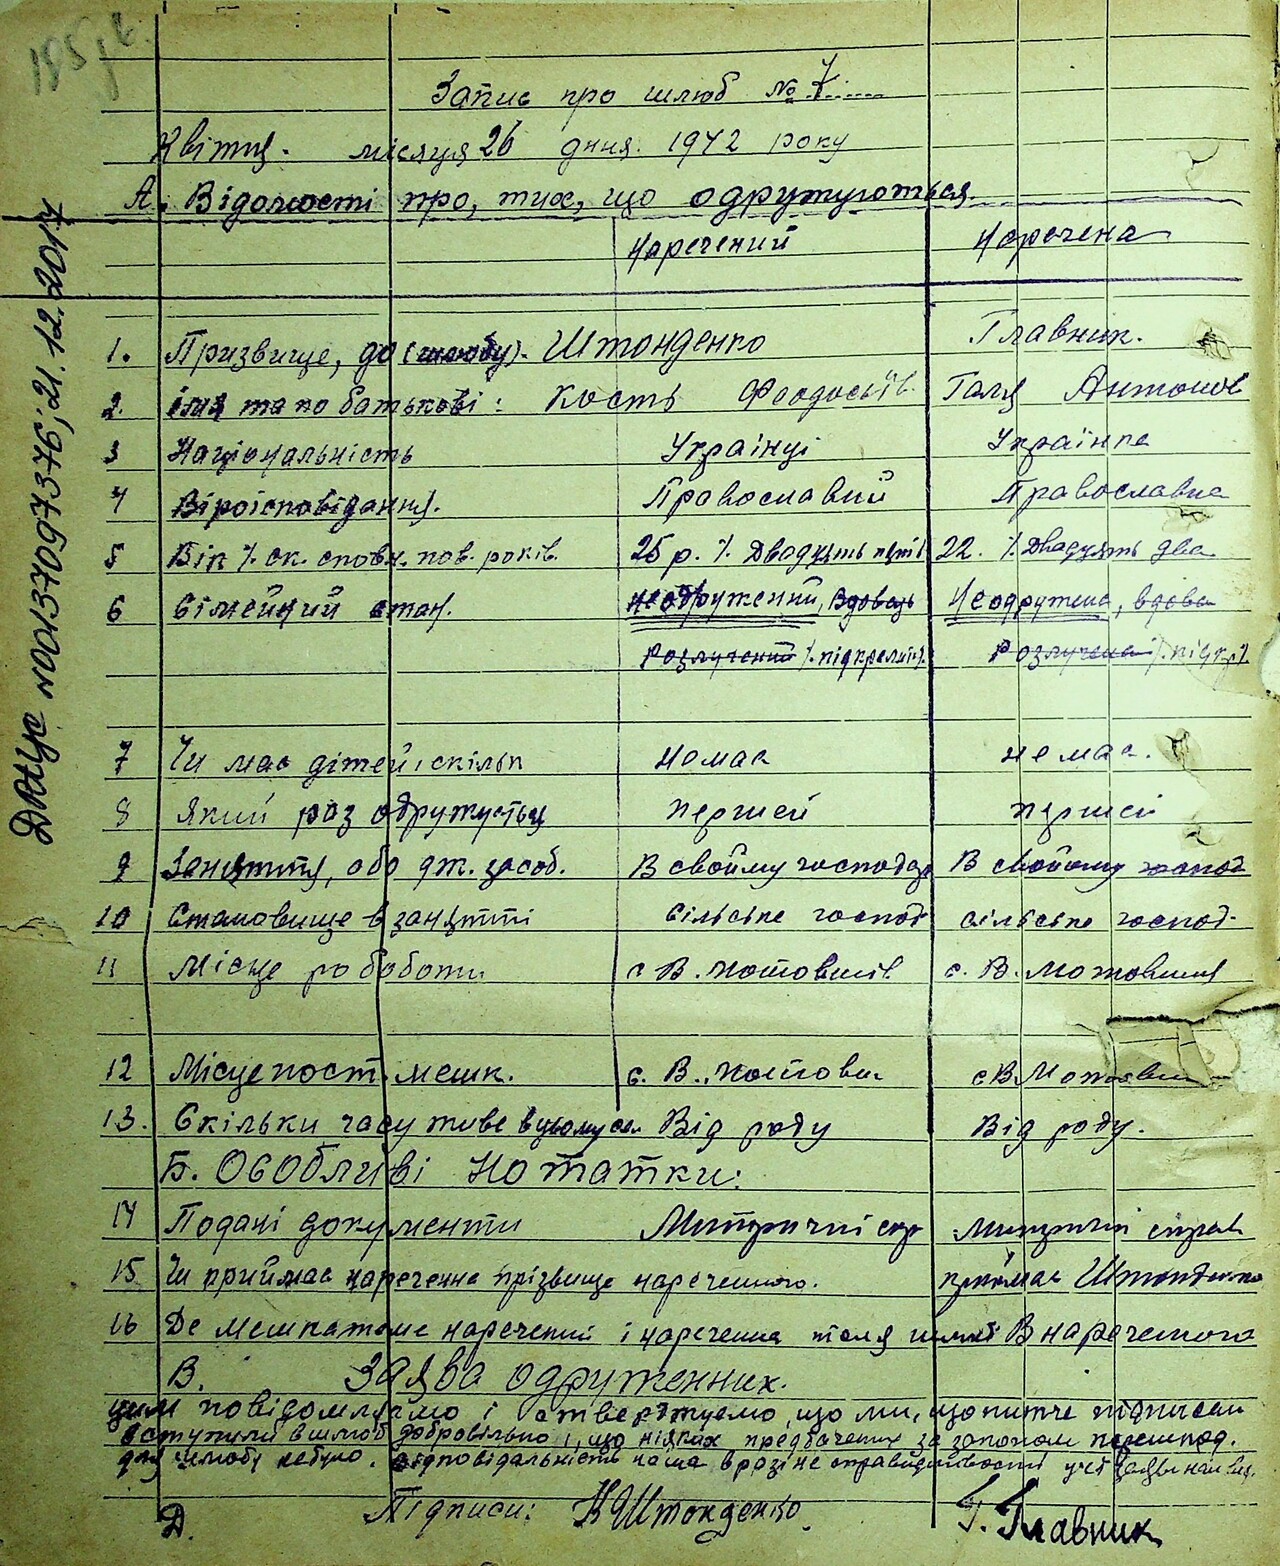 Запис про шлюб № 7
Квітня місяця 26 дння 1942 року
А. Відомості про, тих, що одружуються.
Наречений Наречена
1. Призвище, до (шлюбу). Штонденко Главник.
2. імя та по батькові: Кость Феодосіїв. Галя Антонов
3 Національність Украінці Українка
4 Віроісповідання. Православний Православна
5 Вік /. ск. сповн. пов. років. 25 р. /. Двадцять пять 22. /. Двадцять два
6 Сімейний стан. Неодружений, Вдовець Неодружена, вдова
Розлучений /. підкреслить/. Розлучена /. підкр /.
7 Чи має дітей, скільк Немає не має.
8 Який раз одружується перший перший
9 Заняття, або дж. засоб. В своїму господар В свойому господ
10 Становище в занятті Сільське господ сільське господ.
11 Місце роботи с В. Мотовилів с. В. Мотовилів
12 Місце пост. мешк. с. В. Мотовил с В. Мотовил
13. Скільки часу живе в цьому сел Від роду Від роду.
Б. Особливі нотатки:
14 Подані документи Митричні спр Митричні справ
15 Чи приймає нареченна прізвище нареченного. приймає Штонденко
16 Де мешкатиме наречений і наречена після шлюб В нареченого
В. Заява одруженних.
цим повідомляємо і стверджуємо, що ми, що нижче підписали
вступили в шлюб добровільно і, що ніяких предбачених за законом перешкод.
для шлюбу небуло. відповідальність наша в разі не справидливості
Д. Підписи: К Штонденко. Г. Главник
ДРАЦС N00137097376; 21.12.2017